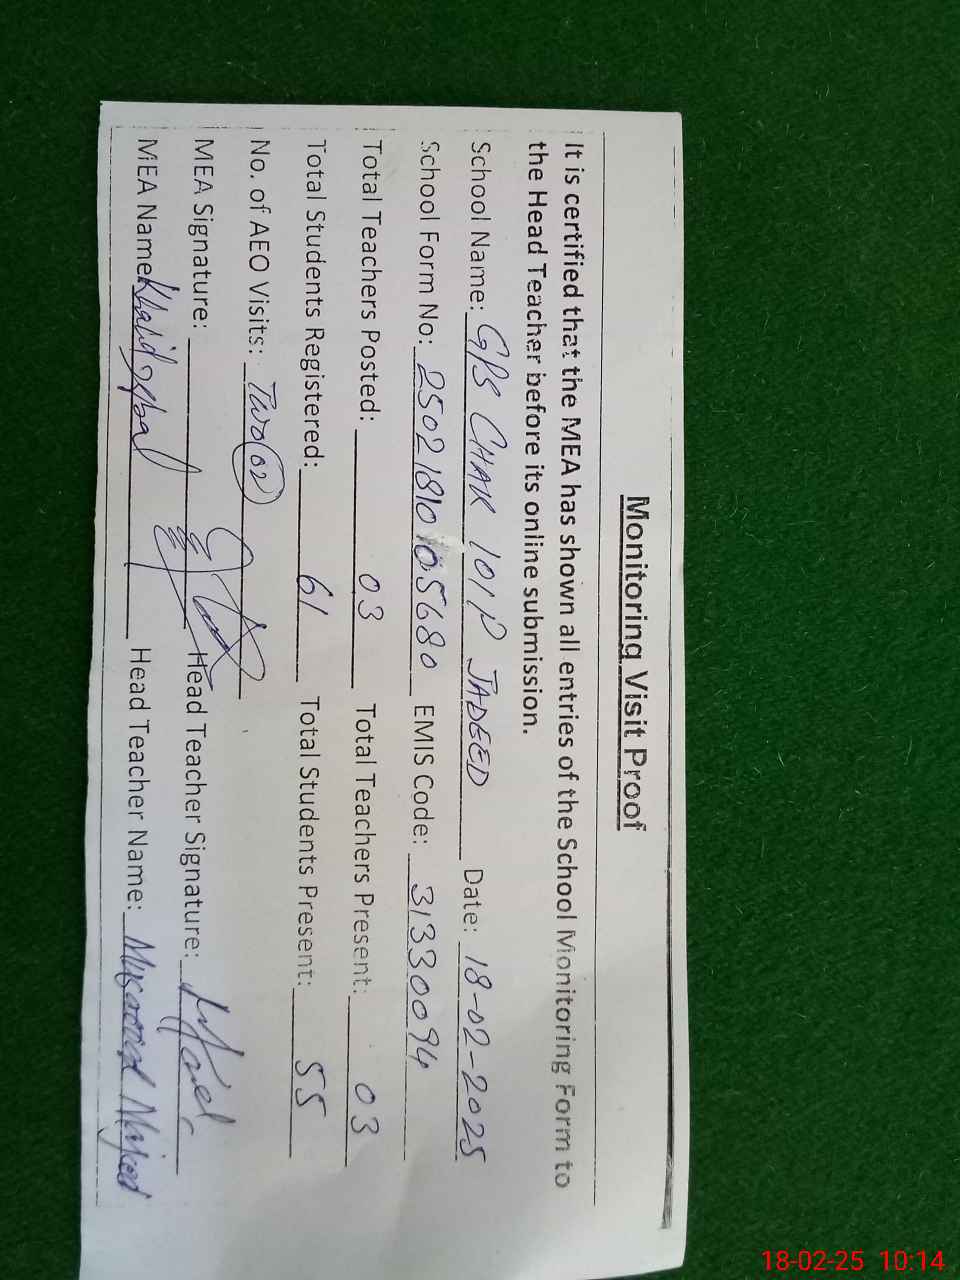 Monitoring Visit Proof
It is certified that the MEA has shown all entries of the School Monitoring Form to
the Head Teacher before its online submission.
School Name: GPS CHAK 101P JADEED Date: 18-02-2025
School Form No: 25021810105680 EMIS Code: 31330094
Total Teachers Posted: 03 Total Teachers Present: 03
Total Students Registered: 61 Total Students Present: 55
No. of AEO Visits: Two (02)
MEA Signature: Head Teacher Signature:
MEA Name Khalid Iqbal Head Teacher Name: Majeed
18-02-25 10:14